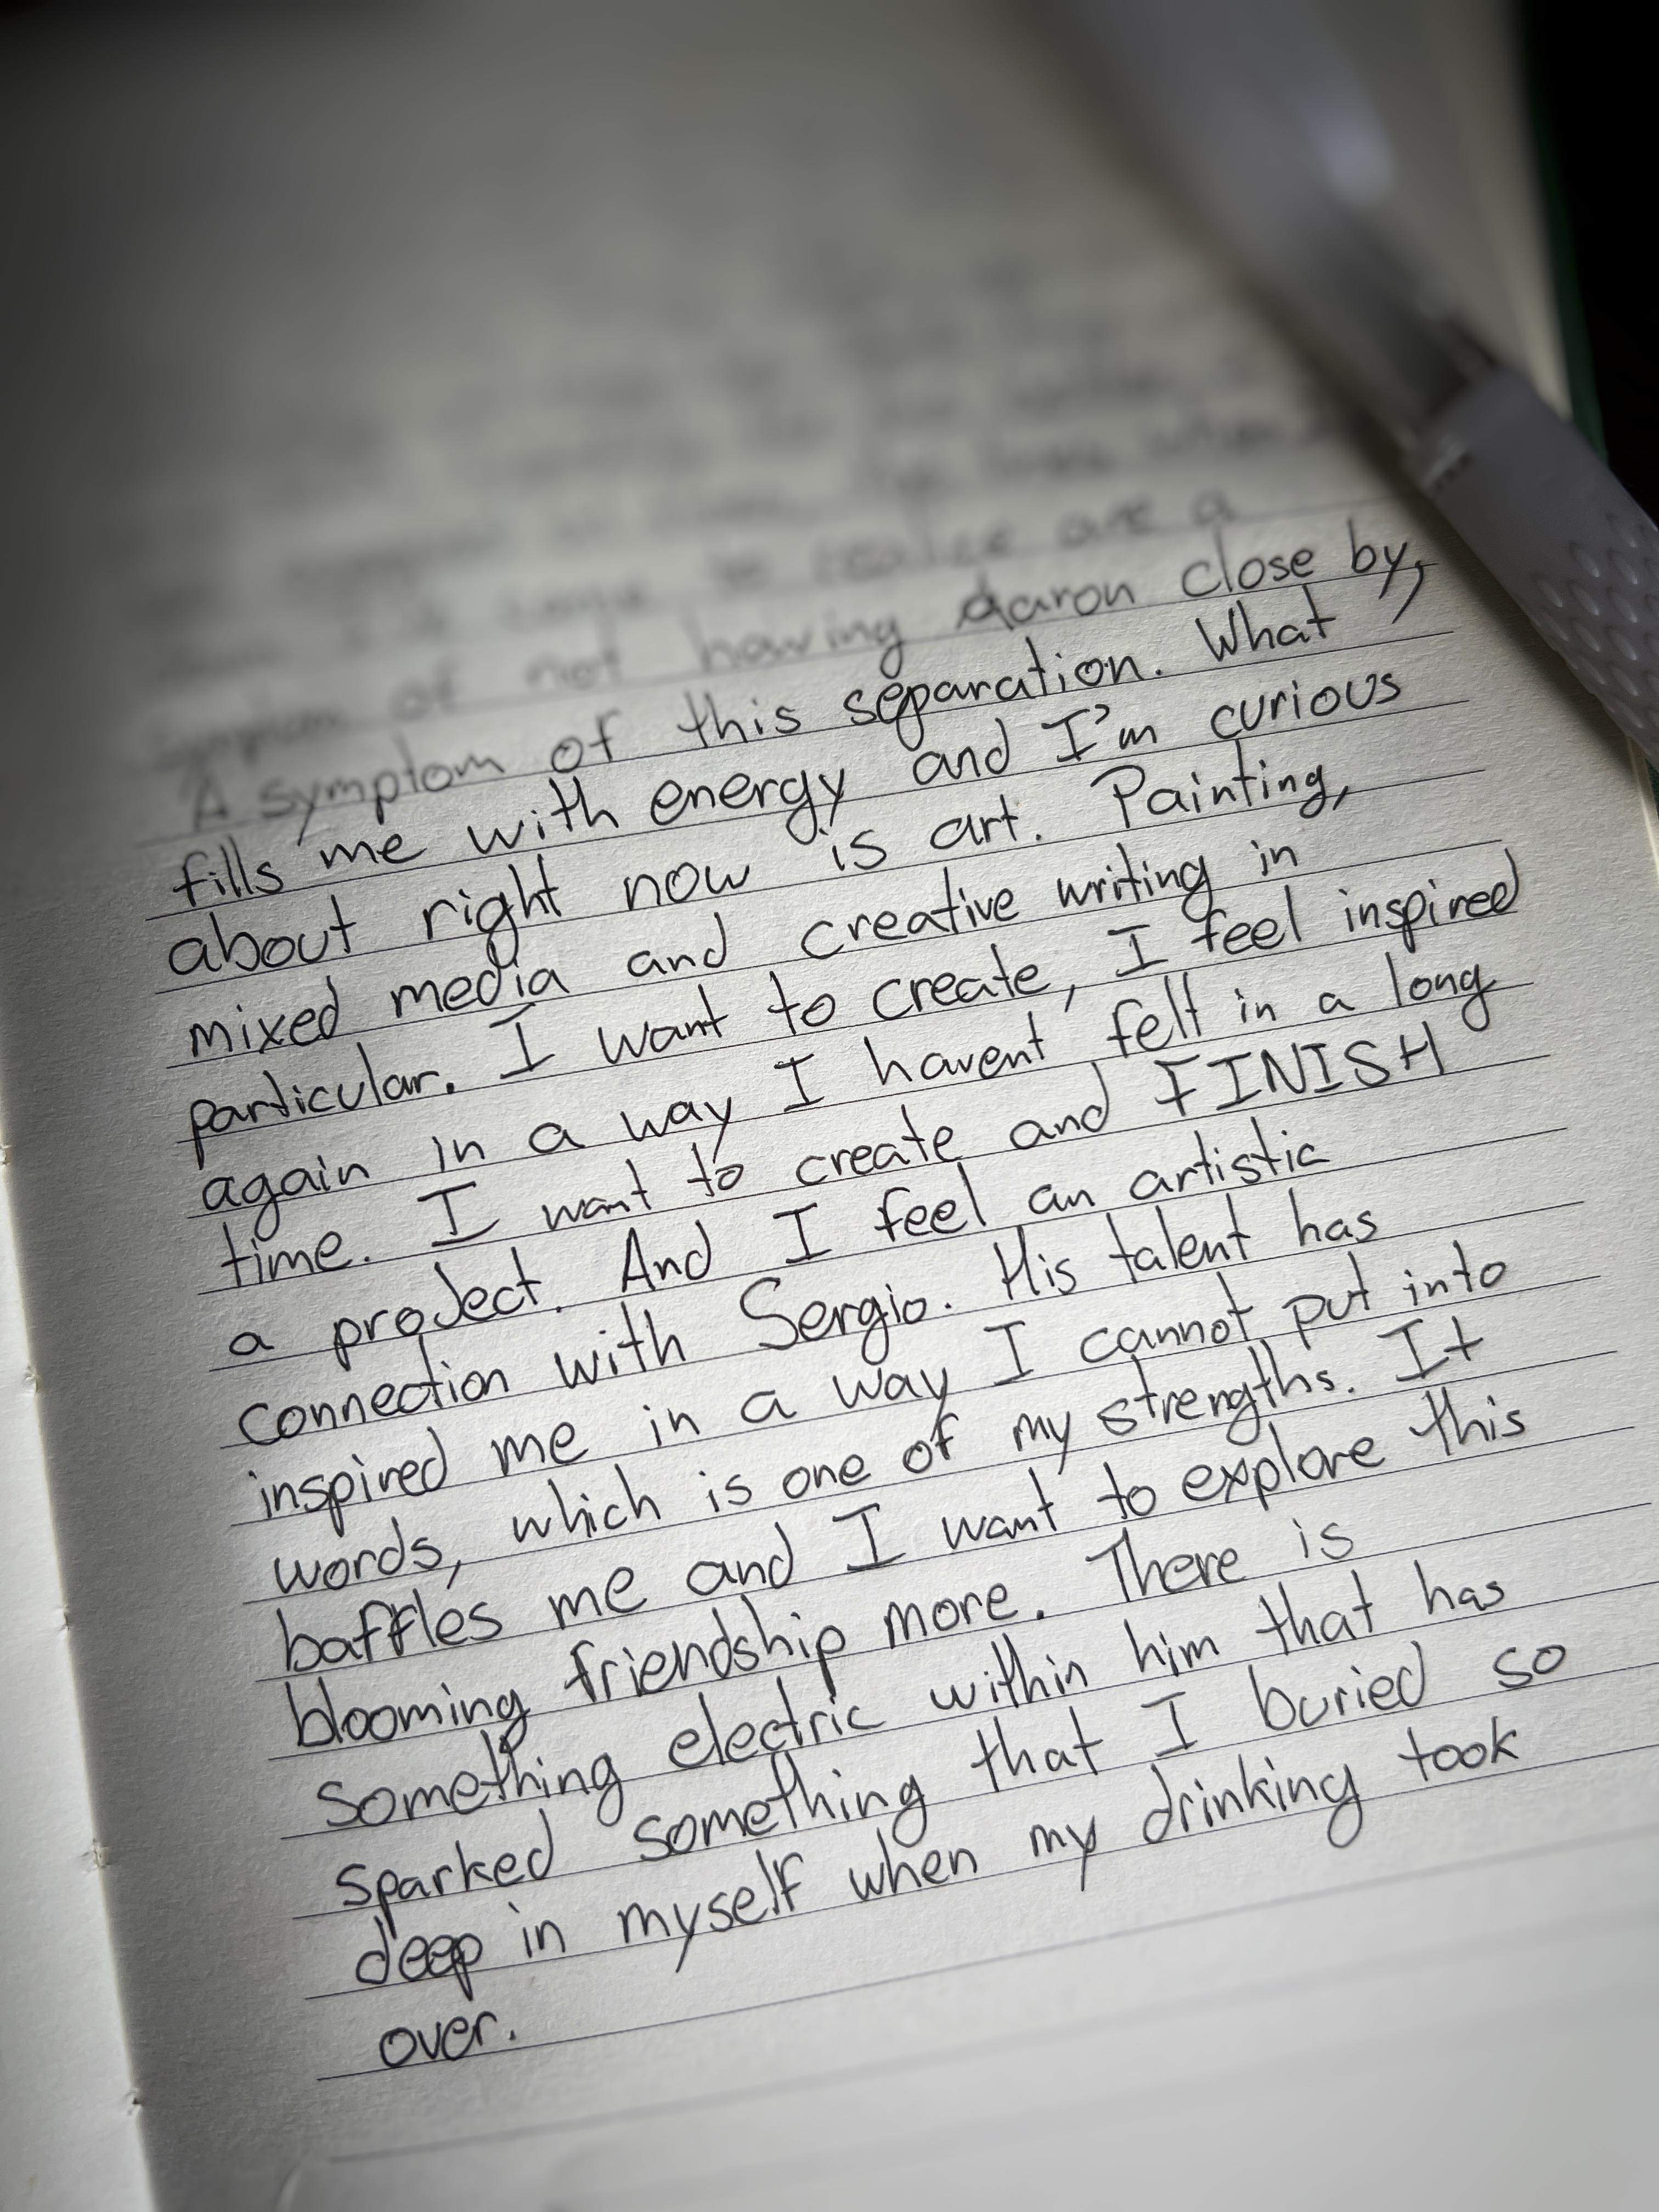 to realize are a
symptom of not having Aaron close by,
A symptom of this separation. What
fills me with energy and I'm curious
about right now is art. Painting,
mixed media and creative writing in
particular. I want to create, I feel inspired
again in a way I havent felt in a long
time. I want to create and FINISH
a project. And I feel an artistic
connection with Sergio. His talent has
inspired me in a way I cannot put into
words, which is one of my strengths. It
baffles me and I want to explore this
blooming friendship more. There is
something electric within him that has
sparked something that I buried so
deep in myself when my drinking took
over.